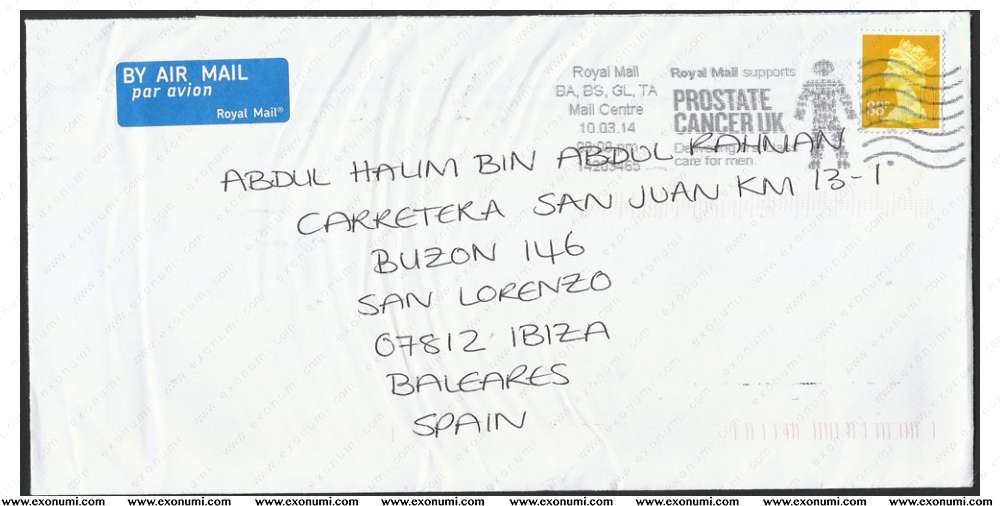 BY AIR MAIL
par avion
Royal Mail®
Royal Mail
BA, BS, GL, TA
Mail Centre
10.03.14
14283465
Royal Mail supports
PROSTATE
CANCER UK
care for men
ABDUL HALIM BIN ABDUL RAHMAN
CARRETERA SAN JUAN KM 13-1
BUZON 146
SAN LORENZO
07812 IBIZA
BALEARES
SPAIN
www.exonumi.com www.exonumi.com www.exonumi.com www.exonumi.com www.exonumi.com www.exonumi.com www.exonumi.com www.exonumi.com